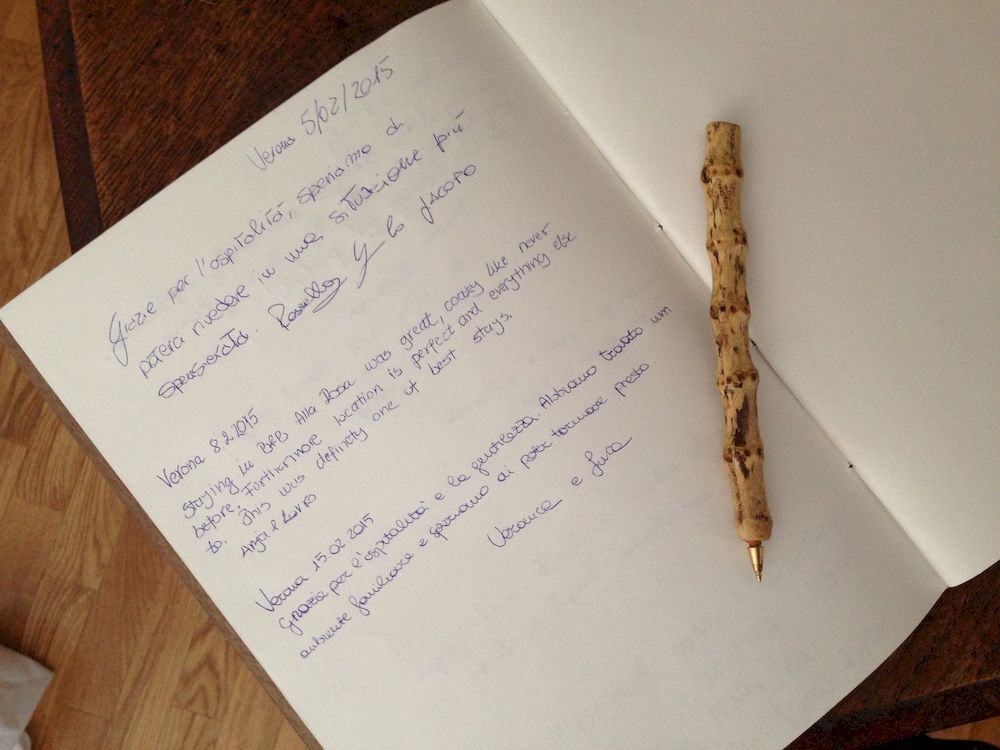 Verona 5/02/2015
Grazie per l'ospitalità, speriamo di
potera rivedere in una situazione più
spensierata. Rossella Jacopo
Verona 8.2.2015
Staying in B&B Alla Rosa was great, coozy like never
before. Furthermore location is perfect and everything else
to. This was definety one of best stays.
Anja &
Verona 15.02.2015
Grazie per l'ospitalità e la gentilezza. Abbiamo trovato um
ambiente familiare e speriamo di poter tornare presto
Veronica e Luca